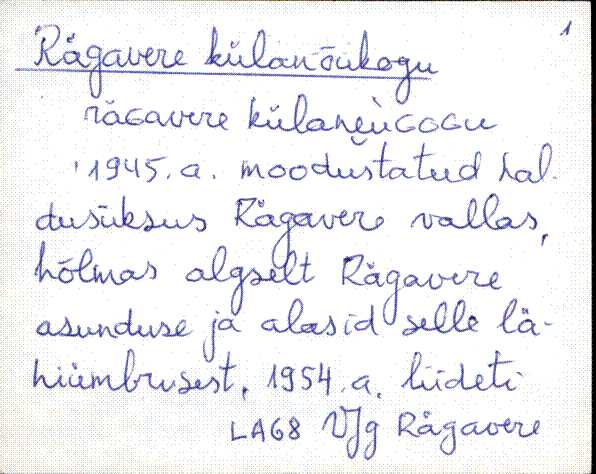 1
Rägavere külanõukogu
räGavere külaneùGOGu
1945. a. moodustatud hal-
dusüksus Rägavere vallas,
hõlmas algselt Rägavere
asunduse ja alasid selle lä-
hiümbrusest. 1954. a. liideti
LA68 VJg Rägavere